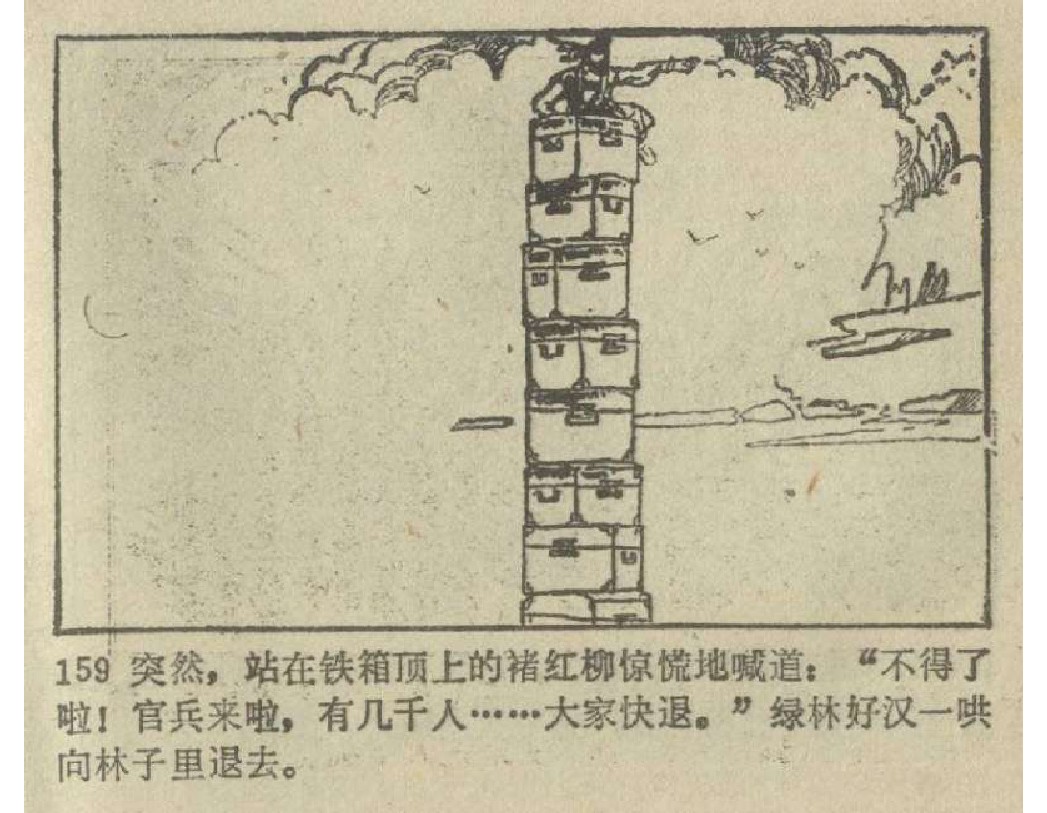 159 突然，站在铁箱顶上的褚红柳惊慌地喊道：“不得了
啦！官兵来啦，有几千人……大家快退。”绿林好汉一哄
向林子里退去。